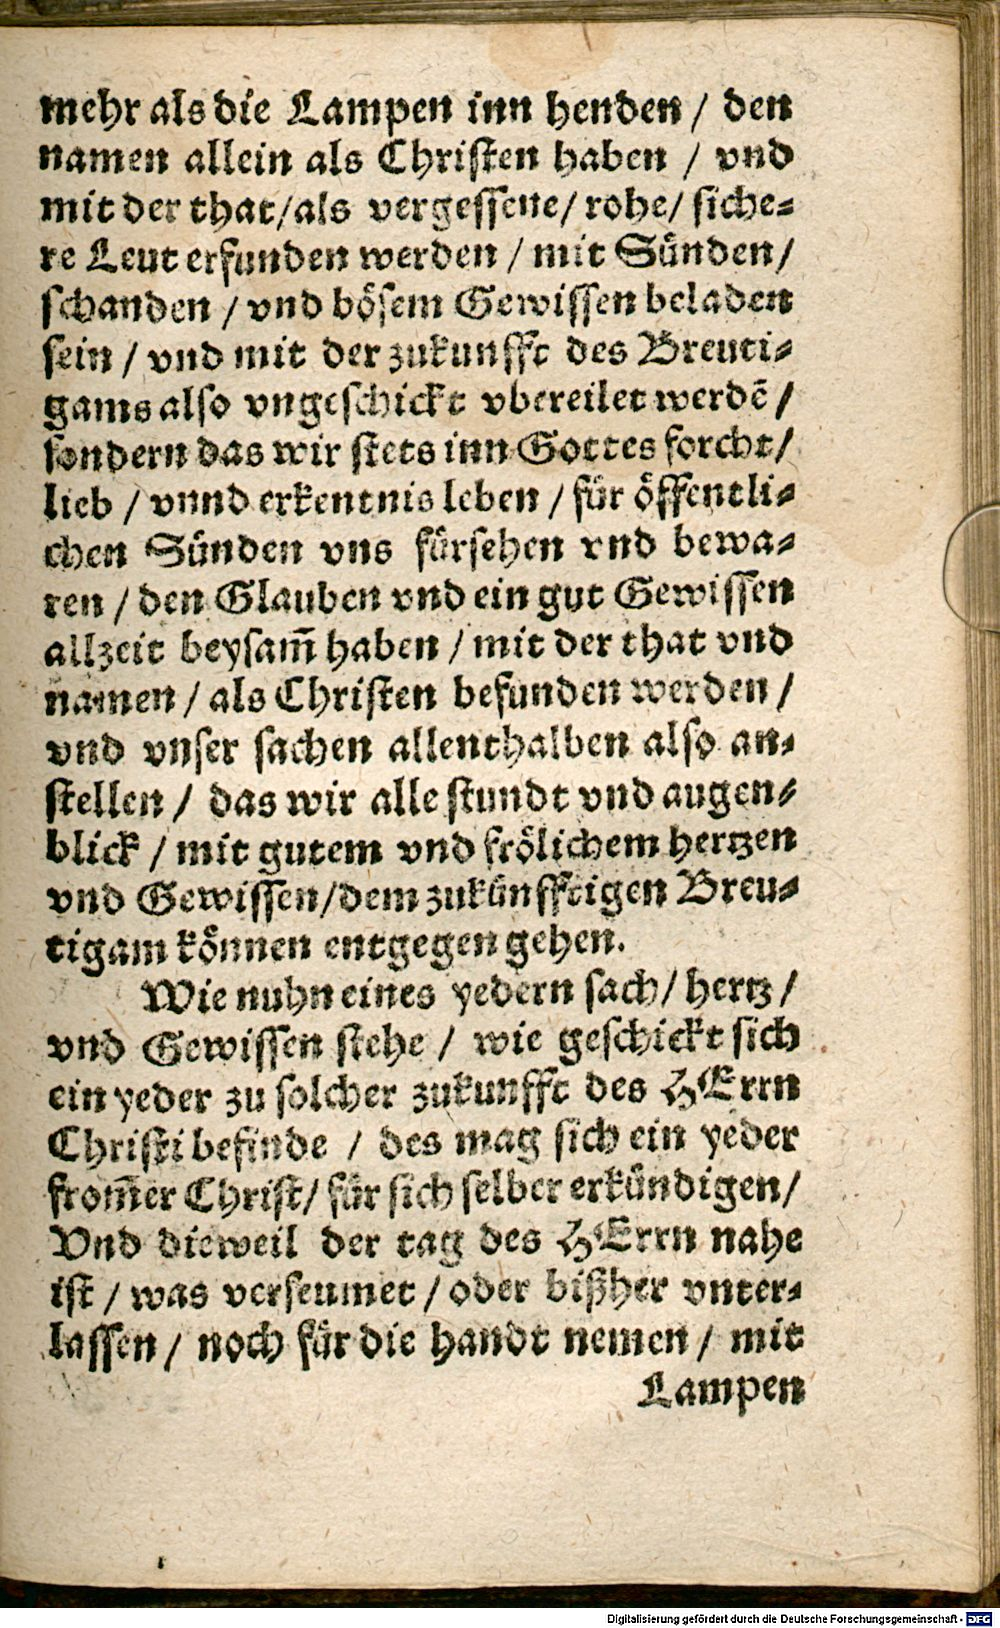 mehr als die Lampen inn henden / den
namen allein als Christen haben / vnd
mit der that/als vergessene/ rohe/ siche=
re Leut erfunden werden / mit Sünden/
schanden / vnd bösem Gewissen beladen
sein / vnd mit der zukunfft des Breuti=
gams also vngeschickt vbereilet werdē /
sondern das wir stets inn Gottes forcht/
lieb / vnnd erkentnis leben / für öffentli=
chen Sünden vns fürsehen vnd bewa=
ren / den Glauben vnd ein gut Gewissen
allzeit beysam̄ haben / mit der that vnd
namen / als Christen befunden werden /
vnd vnser sachen allenthalben also an=
stellen / das wir alle stundt vnd augen=
blick / mit gutem vnd frölichem hertzen
vnd Gewissen/dem zukünfftigen Breu=
tigam können entgegen gehen.
Wie nuhn eines yedern sach/ hertz /
vnd Gewissen stehe / wie geschickt sich
ein yeder zu solcher zukunfft des HErrn
Christi befinde / des mag sich ein yeder
from̄er Christ/ für sich selber erkündigen/
Vnd dieweil der tag des HErrn nahe
ist / was verseumet / oder bißher vnter=
lassen / noch für die handt nemen / mit
Lampen
Digitalisierung gefördert durch die Deutsche Forschungsgemeinschaft - DFG